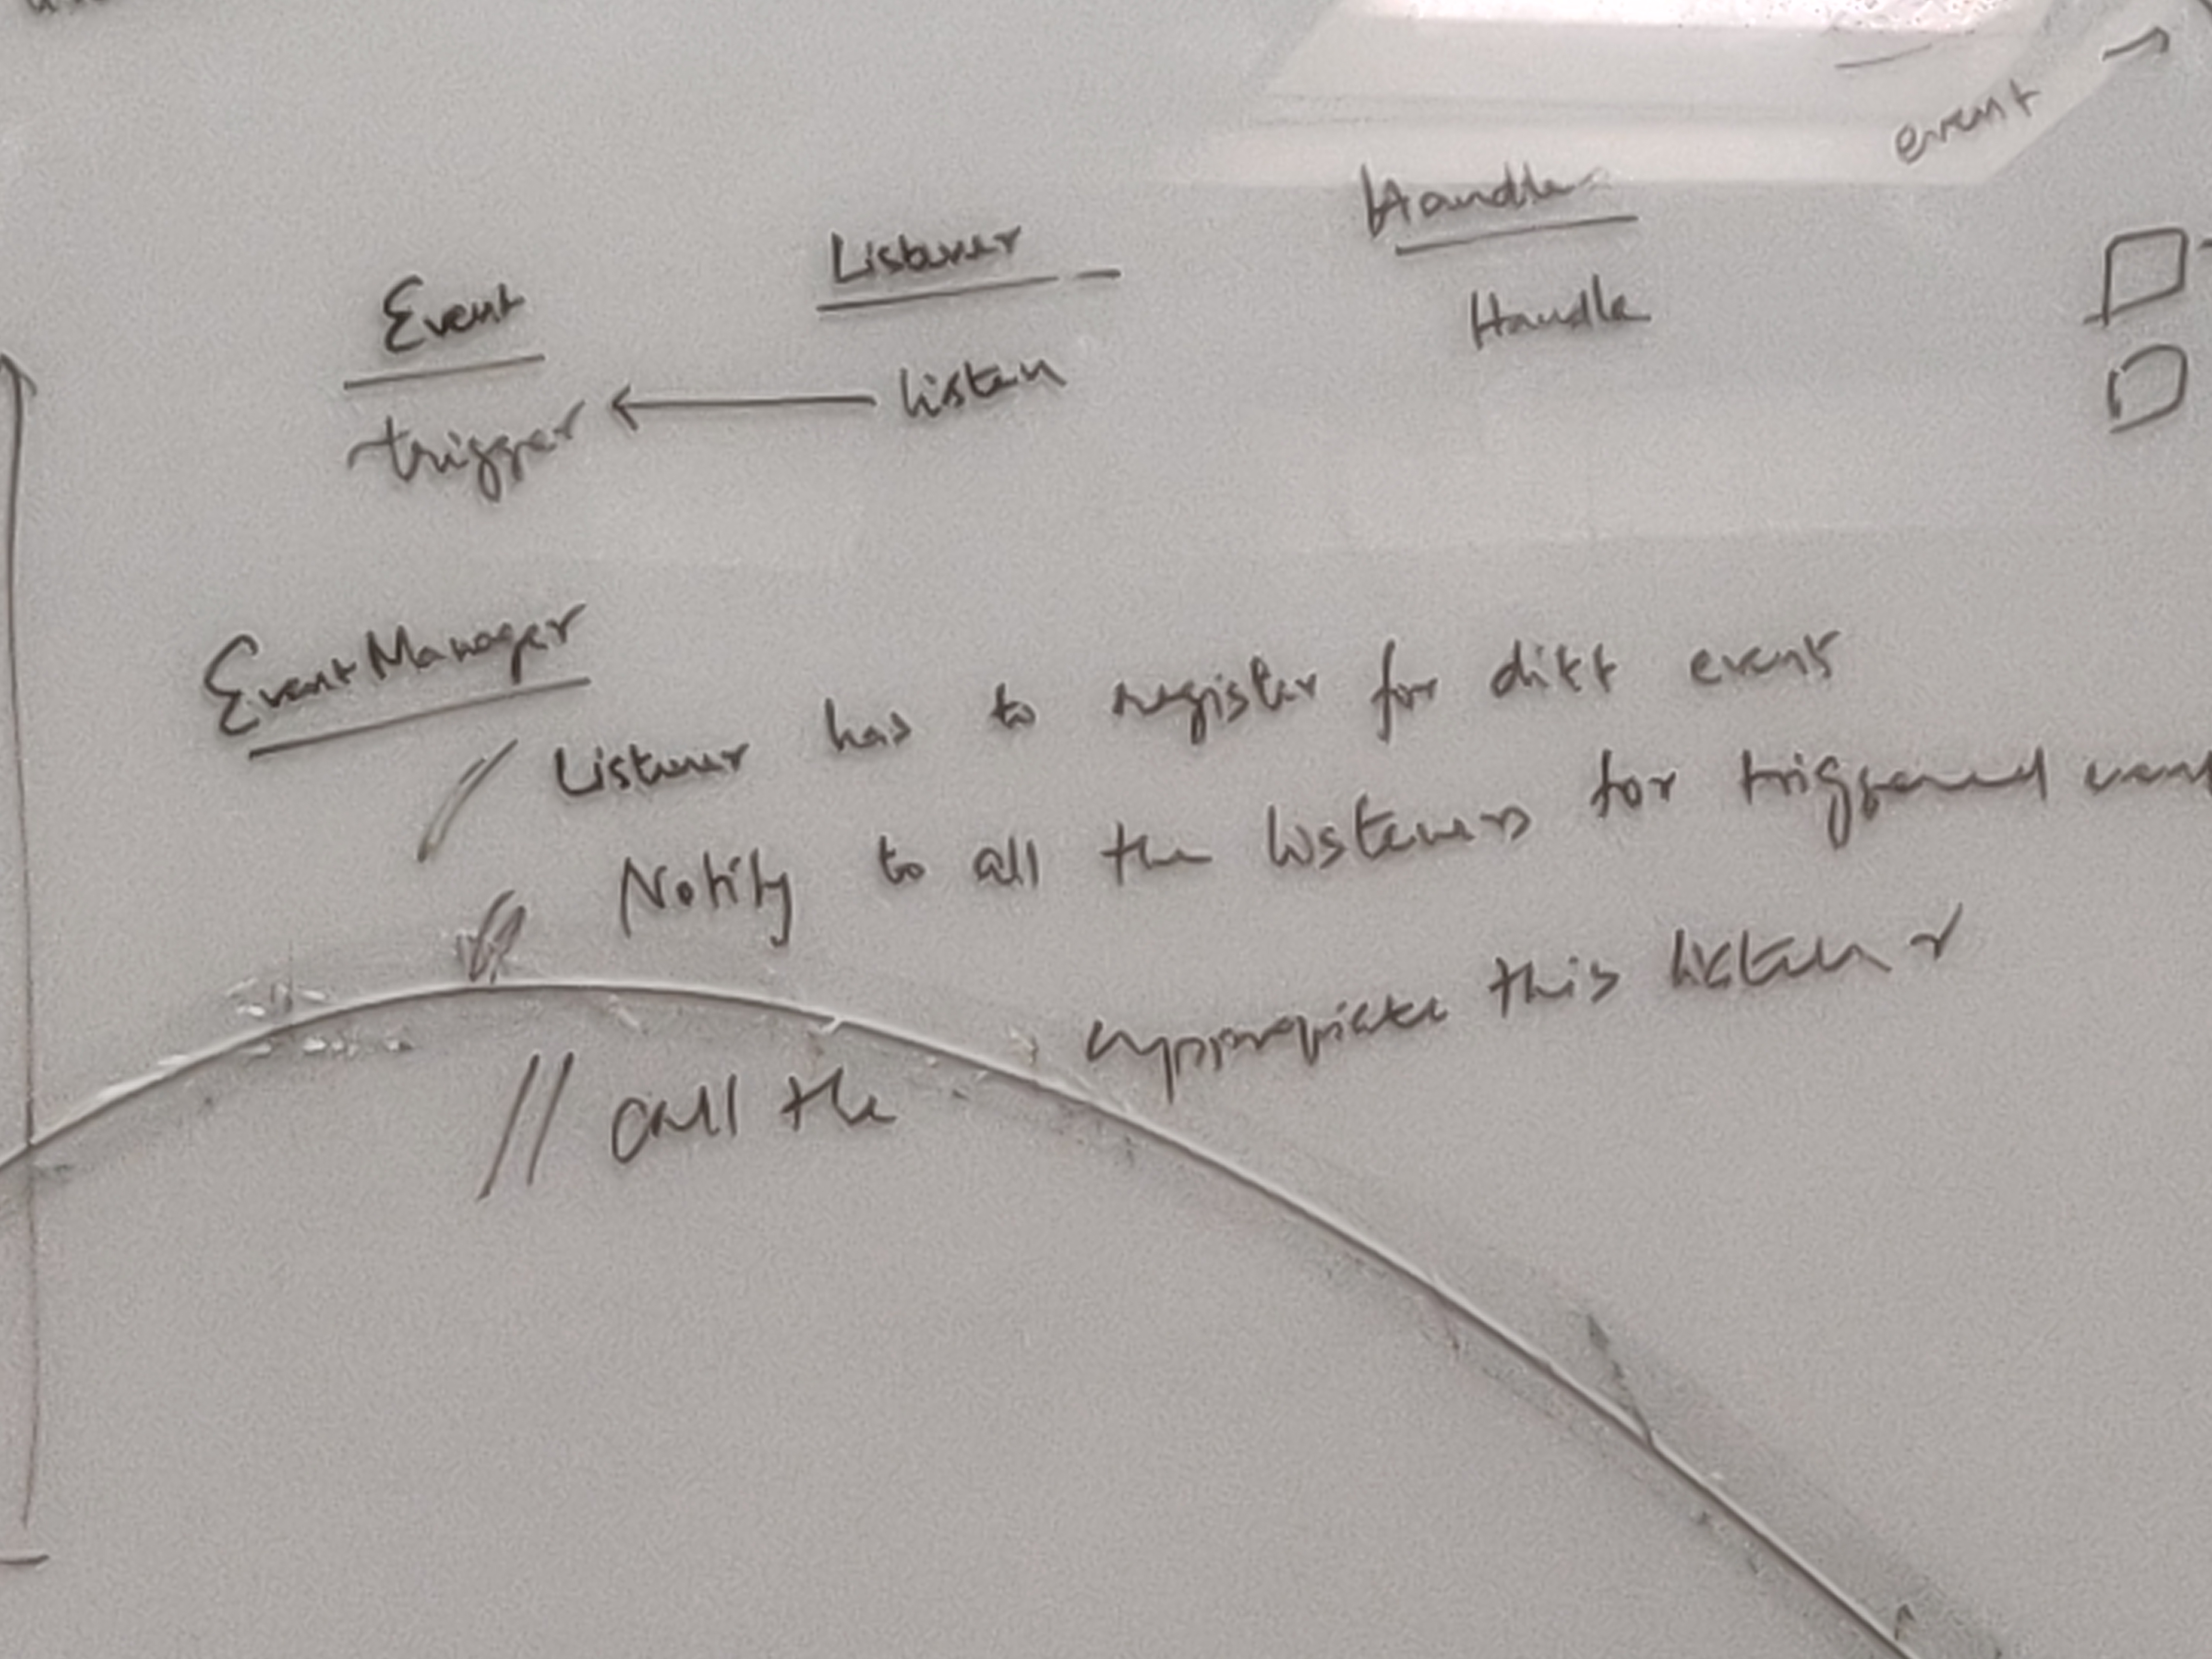 event
Event Listener Handle
trigger listen Handle
EventManager
// Listener has to register for diff event
Notify to all the listeners for triggered event
// call the appropriate this listener